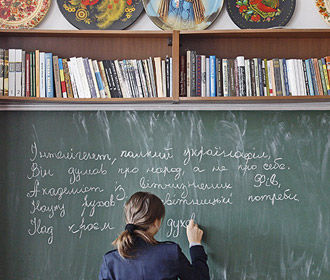 Інтелігент, палкий українофіл,
Він думав про народ, а не про себе.
Академист із вітчизняних Фів,
Науку рухав вітницькі потреби
Над краєм духов